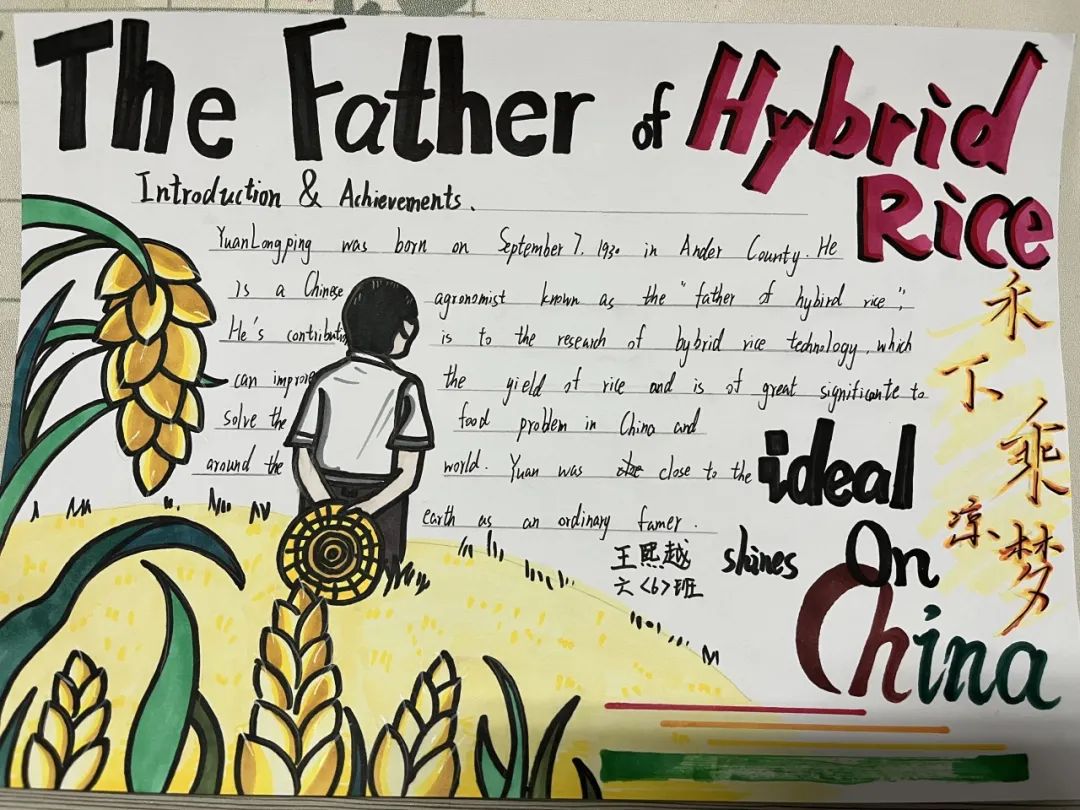 The Father of Hybrid
Rice
Introduction & Achievements.
YuanLongping was born on September 7. 1930 in Ander County. He
is a Chinese agronomist known as the "father of hybird rice",
He's contribution is to the research of hybrid rice technology, which
can improve the yield of rice and is of great significante to
solve the food problem in China and
around the world. Yuan was close to the
earth as an ordinary famer.
王熙越
六〈6〉班
禾
下
乘
凉
梦
ideal
shines On
China